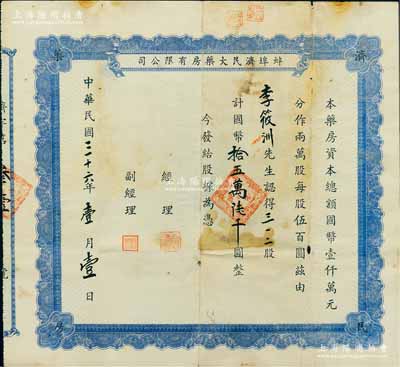 蚌埠濟民大藥房有限公司
本藥房資本總額國幣壹仟萬元
分作兩萬股每股伍百圓茲由
李筱洲先生認得三一二股
計國幣拾五萬陸千圓整
今發給股票為憑
經理
副經理
中華民國三十六年壹月壹日